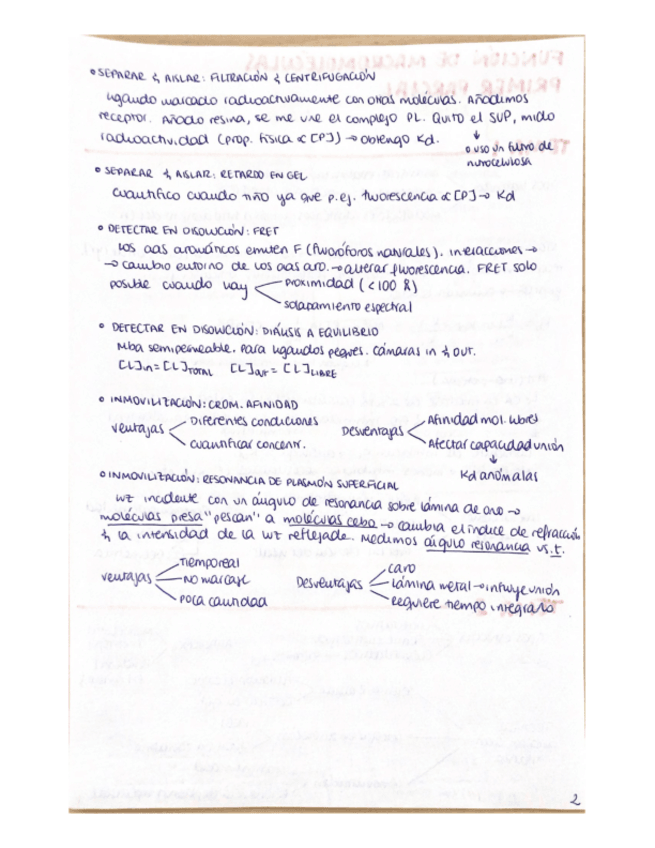 • SEPARAR & AISLAR: FILTRACIÓN & CENTRIFUGACIÓN
ligando marcado radioactivamente con otras moléculas. Añadimos
receptor. Añado resina, se me une el complejo PL. Quito el SUP, mido
radioactividad (prop. física ∝ [P]) → obtengo Kd.
↓
o uso un filtro de
nitrocelulosa
• SEPARAR & AISLAR: RETARDO EN GEL
Cuantifico cuando ya que p.ej. fluorescencia ∝ [P] → Kd
• DETECTAR EN DISOLUCIÓN: FRET
los aas aromáticos emiten F (fluoróforos naturales). interacciones →
→ cambio entorno de los aas aro. → alterar fluorescencia. FRET solo
posible cuando hay
proximidad (<100 Å)
solapamiento espectral
• DETECTAR EN DISOLUCIÓN: DIÁLISIS A EQUILIBRIO
Mba semipermeable. Para ligandos peqñs. Cámaras in & out.
[L]in = [L]TOTAL [L]out = [L]LIBRE
• INMOVILIZACIÓN: CROM. AFINIDAD
ventajas
Diferentes condiciones
cuantificar concentr.
Desventajas
Afinidad mol. libres
Afectar capacidad unión
↓
Kd anómalas
• INMOVILIZACIÓN: RESONANCIA DE PLASMÓN SUPERFICIAL
wz incidente con un ángulo de resonancia sobre lámina de oro →
moléculas presa "pescan" a moléculas cebo → cambia el índice de refracción
& la intensidad de la wz reflejada. Medimos ángulo resonancia vs. t.
ventajas
Tiempo real
No marcaje
Poca cantidad
Desventajas
caro
Lámina metal → influye unión
Requiere tiempo integrarlo
2